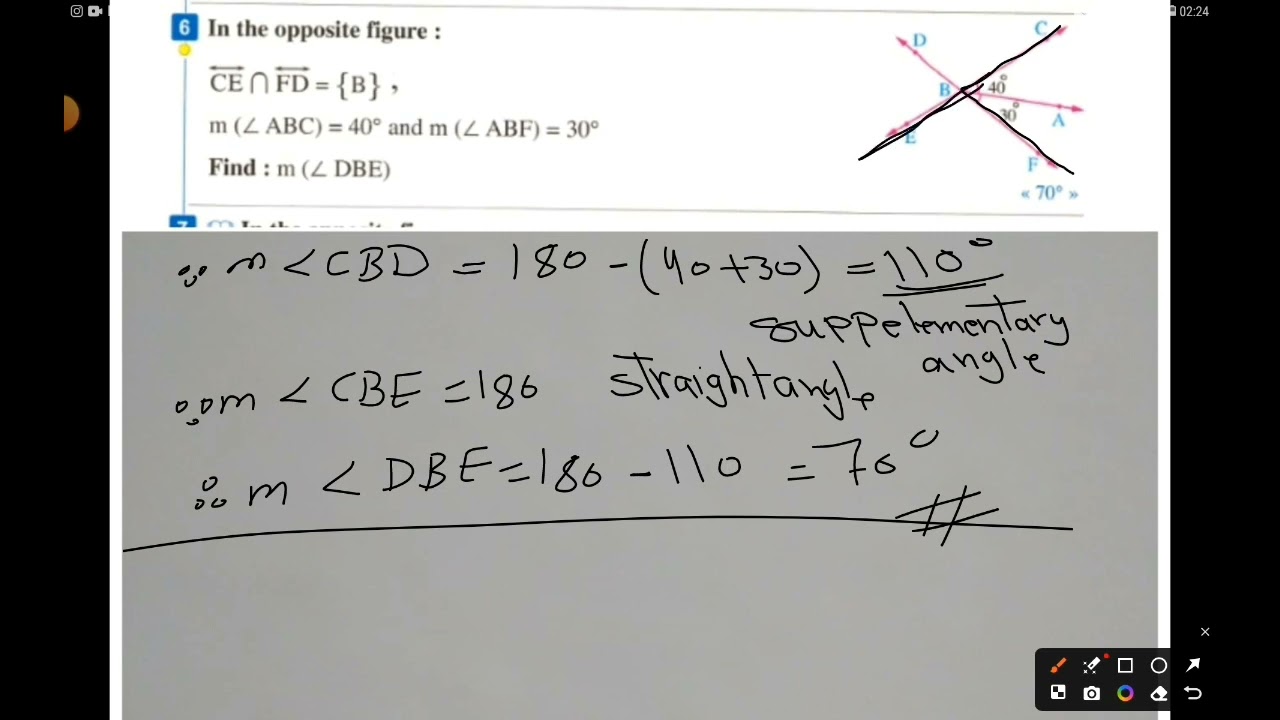 02:24
6 In the opposite figure :
CE ∩ FD = {B} ,
m (∠ ABC) = 40° and m (∠ ABF) = 30°
Find : m (∠ DBE)
D
C
B
40°
30°
A
E
F
« 70° »
7
∵ m < CBD = 180 - (40+30) = 110°
suppelementary
angle
∵ m < CBE = 180 straight angle
∴ m < DBE = 180 - 110 = 70°